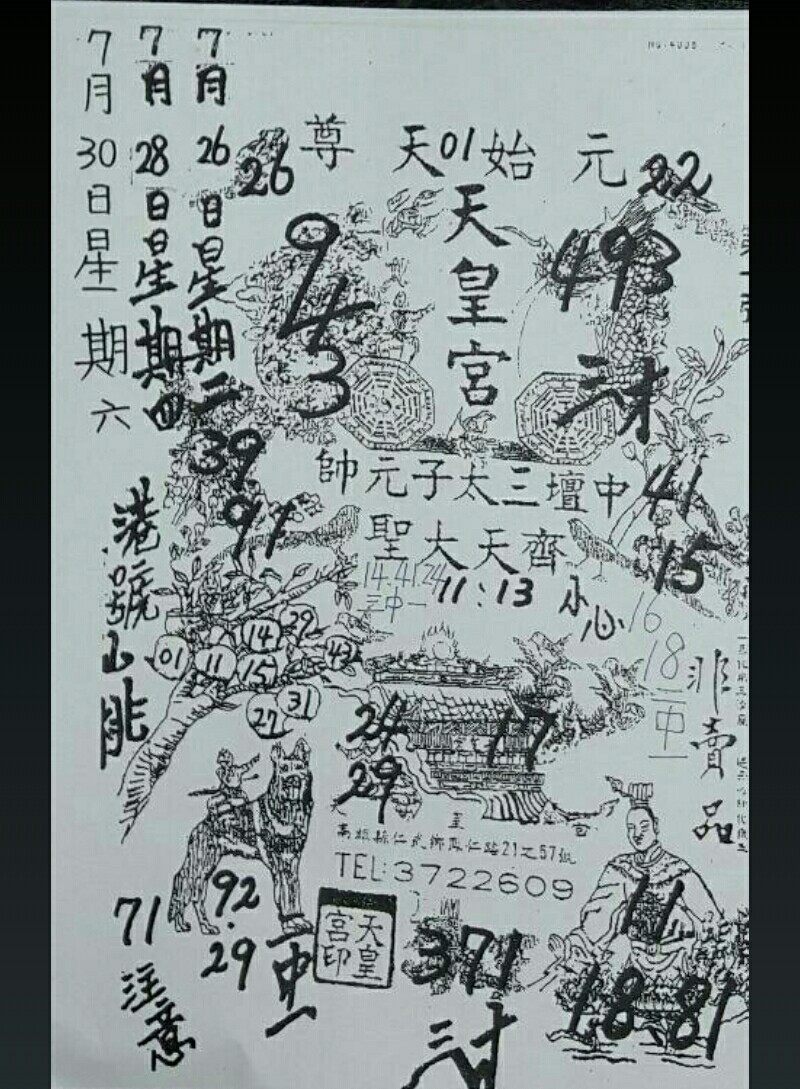 7月26日星期二
7月28日星期四
7月30日星期六
港號山能
元始天01尊
22
26
天皇宮
943
493
三才
39
91
中壇三太子元帥
41
齊天大聖
15
14.41.24
三中一
11:13
小心
16
18
二中一
01
11
14
29
15
43
27
31
24
29
17
非賣品
天皇宮
高雄縣仁武鄉
仁路21之57號
TEL:3722609
71
注意
92.29
二中一
天皇宮印
371
三才
11
18.81